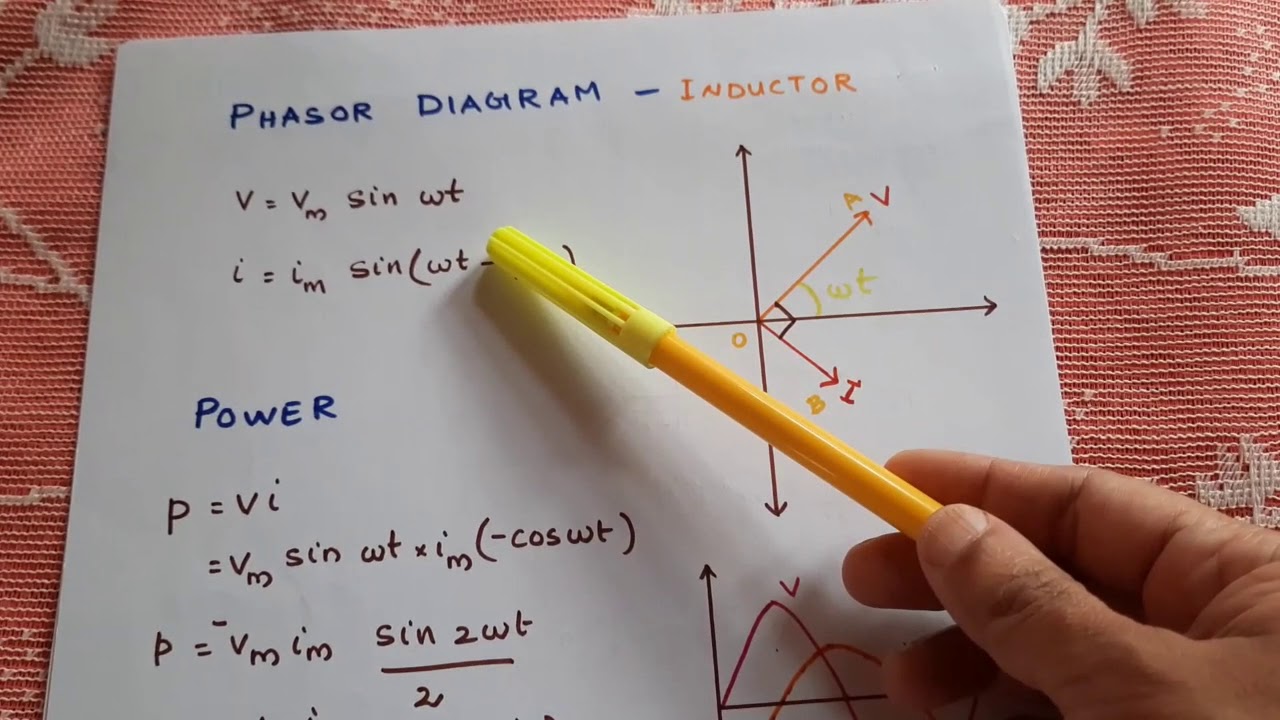 PHASOR DIAGRAM - INDUCTOR
V = Vm sin ωt
i = im sin(ωt - )
A V
ωt
O
B I
POWER
p = vi
= Vm sin ωt × im (-cos ωt)
p = -Vm im sin 2ωt
2
V